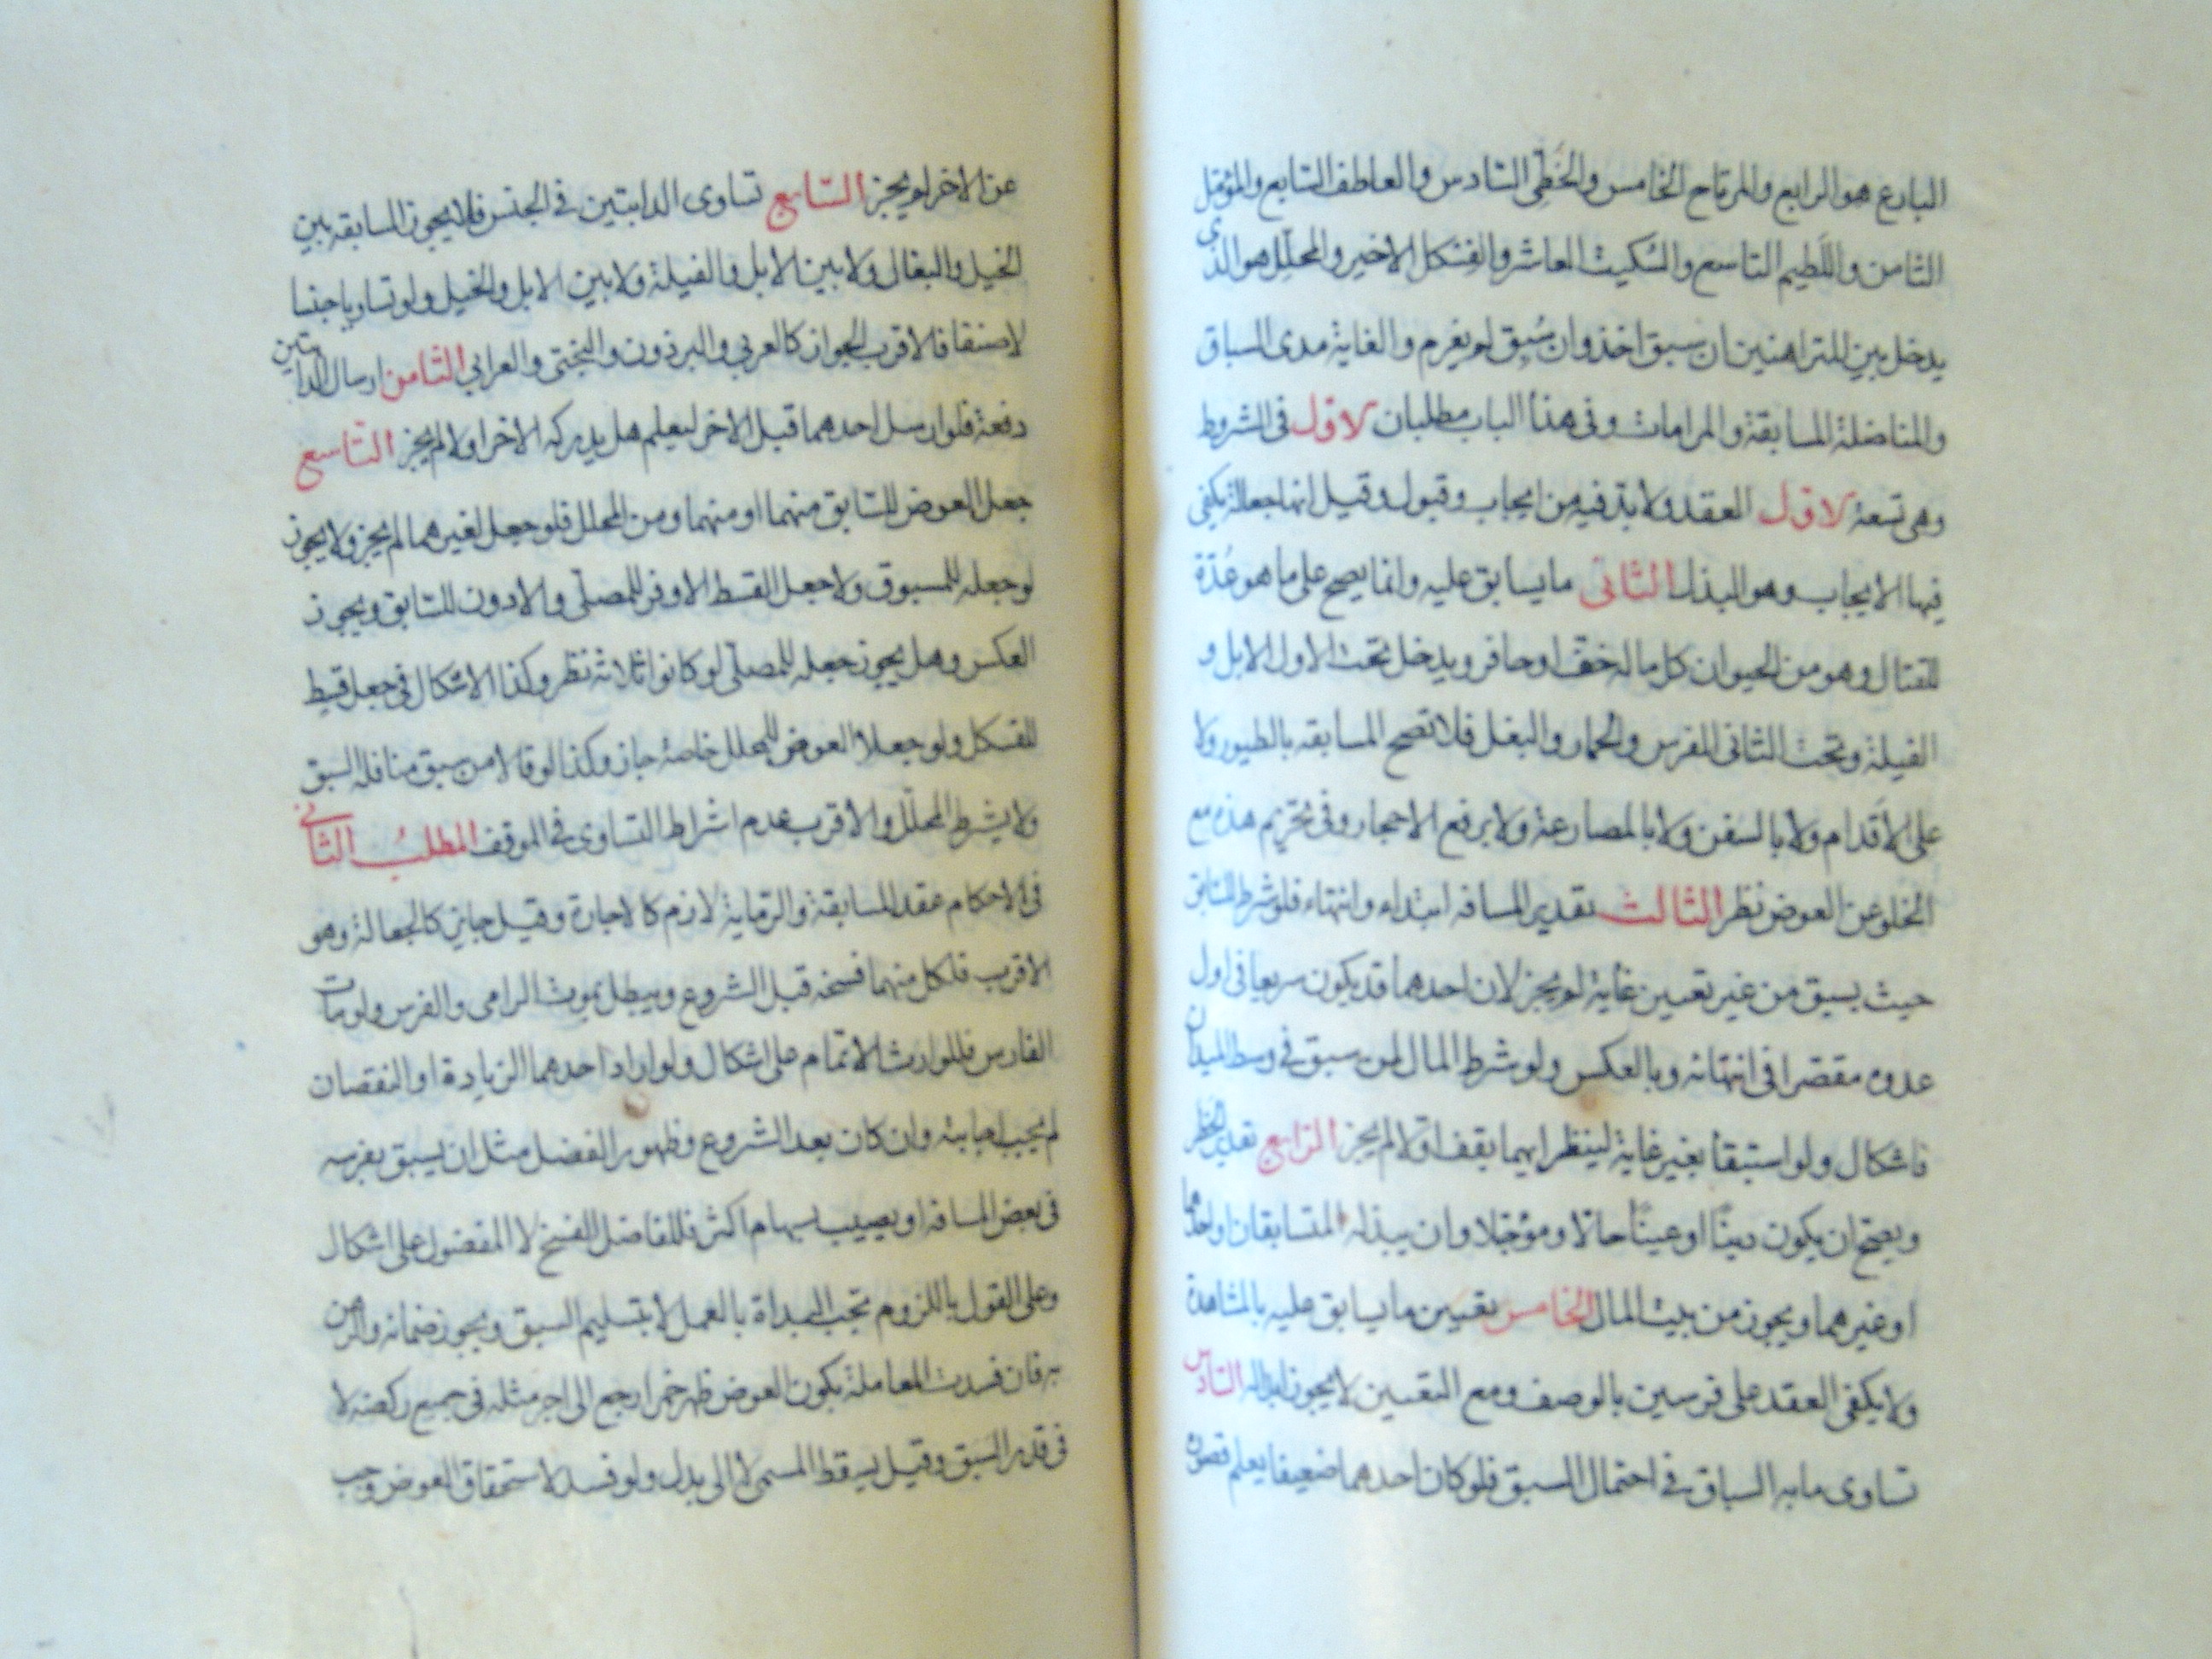 البارع هو الرابع والمرتاح الخامس والخَطِّى السادس والعاطف السابع والمؤمّل
الثامن واللَطيم التاسع والسُكيت العاشر والفِسْكل الاخير والمحلِّل هو الذي
يدخل بين المتراهنين ان سبق اخذ وان سُبِق لم يغرم والغاية مدى السباق
والمناضلة المسابقة والمرامات وفى هذا الباب مطلبان الاول فى الشروط
وهى تسعة الاول العقد ولا بد فيه من ايجاب وقبول وقيل انها جعالة يكفى
فيها الايجاب وهو البذل الثانى ما يسابق عليه وانما يصح على ما هو عُدّة
للقتال وهو من الحيوان كل ماله خفّ او حافر ويدخل تحت الاول الابل و
الفيلة وتحت الثانى الفرس والحمار والبغل فلا تصح المسابقه بالطيور ولا
على الاَقدام ولا بالسفن ولا بالمصارعة ولا برفع الاحجار وفى تحريم هذه مع
الخلو عن العوض نظر الثالث تقدير المسافه ابتداء وانتهاء فلو شرط السابق
حيث يسبق من غير تعيين غاية لم يجز لان احدهما قد يكون سريعا فى اول
عدوه مقصرا فى انتهائه وبالعكس ولو شرط المال لمن سبق فى وسط الميدان
فاشكال ولو استبقا بغير غاية لينظر ايهما يقف اولا لم يجز الرابع تقدير الخطر
ويصح ان يكون دينًا او عينًا حالا ومؤجلا وان يبذله المتسابقان او احدهما
او غيرهما ويجوز من بيت المال الخامس تعيين ما يسابق عليه بالمشاهدة
ولا يكفى العقد على فرسين بالوصف ومع التعيين لا يجوز ابداله السادس
تساوى ما به السباق فى احتمال السبق فلو كان احدهما ضعيفا يعلم قصوره
عن الاخر لم يجز السابع تساوى الدابتين فى الجنس فلا يجوز المسابقه بين
الخيل والبغال ولا بين الابل والفيلة ولا بين الابل والخيل ولو تساويا جنسا
لا صنفا فالاقرب الجواز كالعربي والبرذون والبختى والعرابي الثامن ارسال الدابتين
دفعة فلو ارسل احدهما قبل الاخر ليعلم هل يدركه الاخر اولا لم يجز التاسع
جعل العوض للسابق منهما او منهما ومن المحلل فلو جعل لغيرهما لم يجز ولا يجوز
لو جعله للمسبوق ولا جعل القسط الاوفر للمصلّى والادون للسابق ويجوز
العكس وهل يجوز جعله للمصلّى لو كانوا ثلاثة نظر وكذا الاشكال فى جعل قسط
للفسكل ولو جعلا العوض للمحلل خاصة جاز وكذا لو قالا من سبق منا فله السبق
ولا يشرط المحلّل والاقرب عدم اشراط التساوى فى الموقف المطلبُ الثانى
فى الاحكام عقد المسابقة والرماية لازم كالاجارة وقيل جايز كالجعالة وهو
الاقرب فلكل منهما فسخه قبل الشروع ويبطل بموت الرامى والفرس ولو مات
الفارس فللوارث الاتمام على اشكال ولو اراد احدهما الزيادة او النقصان
لم يجب اجابته وان كان بعد الشروع وظهور الفضل مثل ان يسبق بفرسه
فى بعض المسافه او يصيب بسهام اكثر فللفاضل الفسخ لا المفضول على اشكال
وعلى القول باللزوم تجب البداة بالعمل لا بتسليم السبق ويجوز ضمانه والرهن
به فان فسدت المعاملة بكون العوض ظهر خمرا رجع الى اجر مثله فى جميع ركضه لا
فى قدر السبق وقيل يسقط المسمى لا الى بدل ولو فسد لاستحقاق العوض وجب